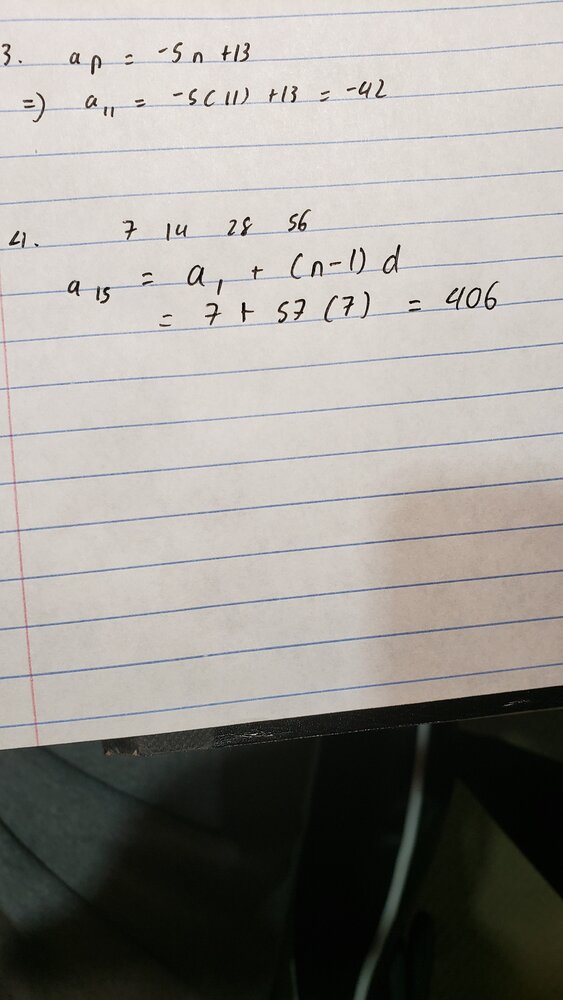 3. aₙ = -5n +13
=) a₁₁ = -5(11) +13 = -42
4. 7 14 28 56
a₁₅ = a₁ + (n-1) d
= 7 + 57 (7) = 406